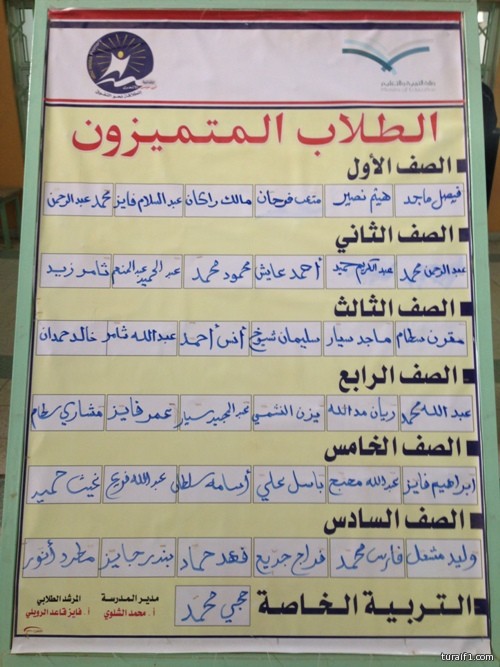 وزارة التربية والتعليم
Ministry of Education
الطلاب المتميزون
الصف الأول
فيصل ماجد هيثم نصير متعب فرحان مالك راكان عبدالسلام فايز محمد عبدالرحمن
الصف الثاني
عبدالرحمن محمد عبدالكريم حميد أحمد عايش محمود محمد عبدالحميد عبدالمنعم ثامر زيد
الصف الثالث
مقرن سطام ماجد سيار سليمان شيخ أنس أحمد عبدالله ثامر خالد حمدان
الصف الرابع
عبدالله محمد ريان مدالله يزن الشمري عبدالمجيد سيار عمر فايز مشاري سطام
الصف الخامس
ابراهيم فايز عبدالله مصبح باسل علي أسامة سلطان عبدالله فريح غيث حميد
الصف السادس
وليد مشعل فارس محمد فراج جديع فهد حماد بندر جايز مطرد أنور
التربية الخاصة حجي محمد
مدير المدرسة
أ. محمد الشلوي
المرشد الطلابي
أ. فايز قاعد الرويلي
turaif1.com